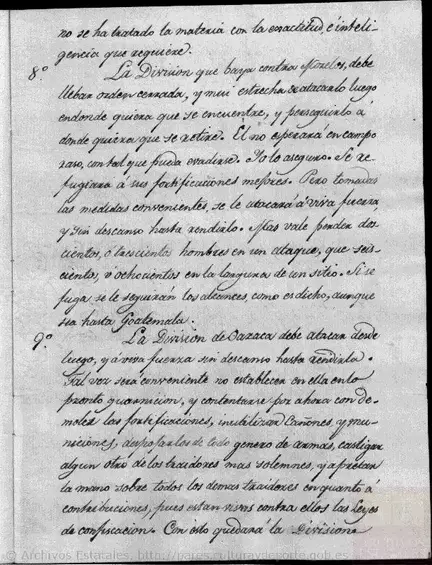 no se ha tratado la materia con la exactitud, é inteli-
gencia que requiere.
8.º La Division que baya contra Morelos, debe
llebar orden cerrada, y mui estrecha de atacarlo luego
endonde quiera que se encuentre, y perseguirlo á
donde quiera que se retire. El no esperará en campo
raso, contal que pueda evadirse. Yo lo aseguro. Se re-
fugiará á sus fortificaciones mejores. Pero tomadas
las medidas convenientes, se le atacará á viva fuerza
y sin descanso hasta rendirlo. Mas vale perder dos-
cientos, ó trescientos hombres en un ataque, que seis-
cientos, ú ochocientos en la largura de un sitio. Si se
fuga se le seguirán los alcances, como es dicho, aunque
sea hasta Goatemala.
9.º La Division de Oaxaca debe atacar desde
luego, y á viva fuerza sin descanso hasta rendirla.
Tal vez será conveniente no establecer en ella en lo
pronto guarnicion, y contentarse por ahora con de-
moler las fortificaciones, inutilizar Cañones, y mu-
niciones, despojarlos de todo genero de armas, castigar
algun otro de los traidores mas solemnes, y apretar
la mano sobre todos los demas traidores en quanto á
contribuciones, pues estan vivas contra ellos las Leyes
de confiscacion. Con esto quedará la Division
© Archivos Estatales, http://pares.culturaydeporte.gob.es